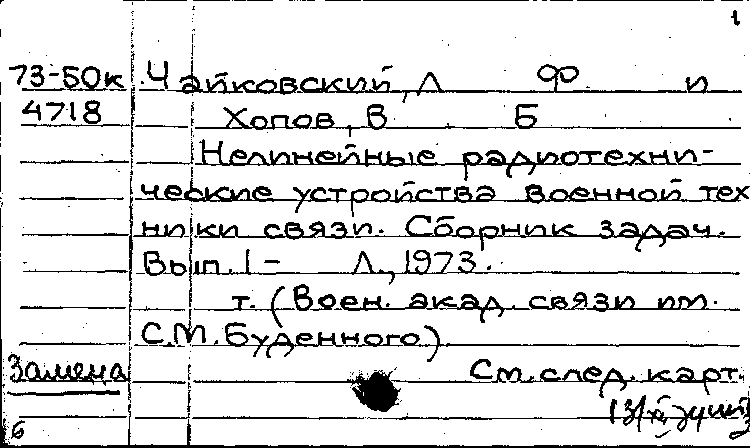 1
73-50к Чайковский, Л Ф и
4718 Хопов, В Б
Нелинейные радиотехни-
ческие устройства военной тех
ники связи. Сборник задач.
Вып. 1 - Л., 1973.
т. (Воен. акад. связи им.
С.М. Буденного).
Замена См. след. карт.
13/XI
б